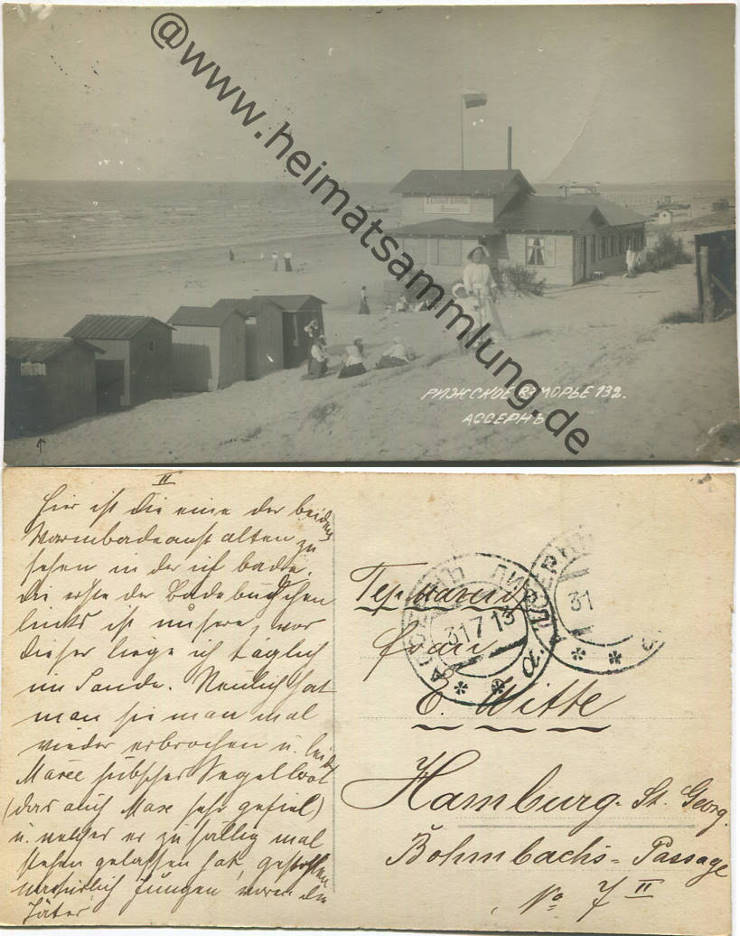 @www.heimatsammlung.de
РИЖСКОЕ ВЗМОРЬЕ 132.
АССЕРНЪ
II
Hier ist die eine der beiden
Warmbadeanstalten zu
sehen in der ich bade.
Die erste der Badebudchen
links ist unsere, vor
dieser liege ich täglich
im Sande. Neulich hat
man sie man mal
wieder erbrochen u. leider
hübsches Segelboot
(das auch Max sehr gefiel)
u. welches er zufällig mal
stehen gelassen hat, gestohlen
natürlich Jungen waren die
Täter
Германия
Frau
E. Witte
Hamburg. St. Georg.
Böhmbachs-Passage
No 7 II
АССЕРНЪ ЛИФЛ.
31 7 13
а
31